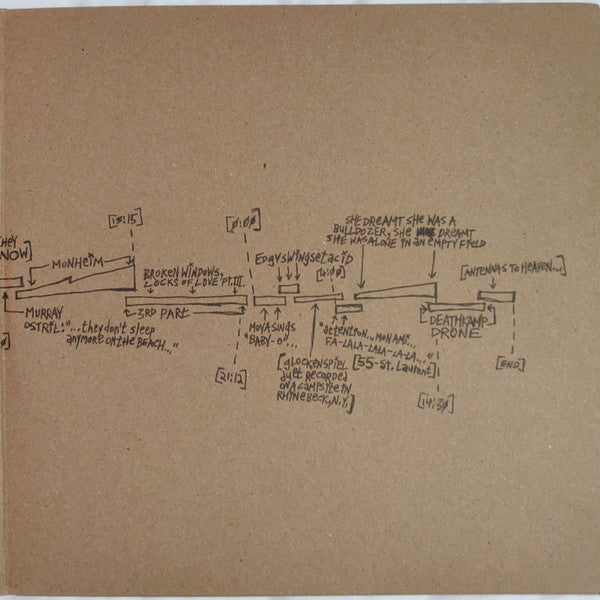 HEY
NOW]
MONHEIM
[13:15]
MURRAY
OSTRIL: "...they don't sleep
anymore on the beach..."
BROKEN WINDOWS,
LOCKS OF LOVE PT. III.
3RD PART
[21:12]
[0:00]
MOYA SINGS
"BABY-O"...
EDGYSWINGSETACID
[GLOCKENSPIEL
DUET RECORDED
ON A CAMPSITE IN
RHINEBECK, N.Y.]
[4:00]
"attention...MON AMI...
FA-LALA-LALA-LA-LA..."
[55-St. Laurent]
SHE DREAMT SHE WAS A
BULLDOZER, SHE DREAMT
SHE WAS ALONE IN AN EMPTY FIELD
DEATHKAMP
DRONE
[14:30]
[ANTENNAS TO HEAVEN...]
[END]